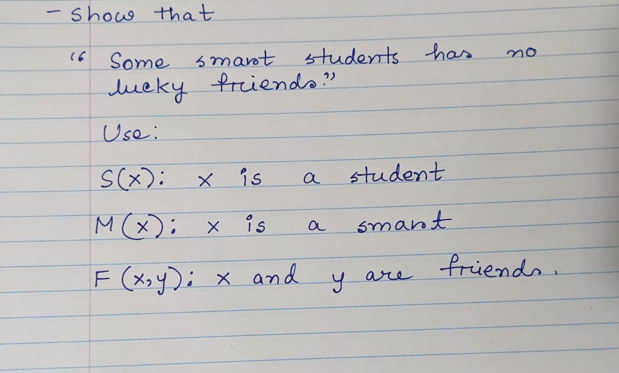 - Show that
“ Some smart students has no
lucky friends.”
Use:
S(x): x is a student
M(x): x is a smart
F(x,y): x and y are friends.